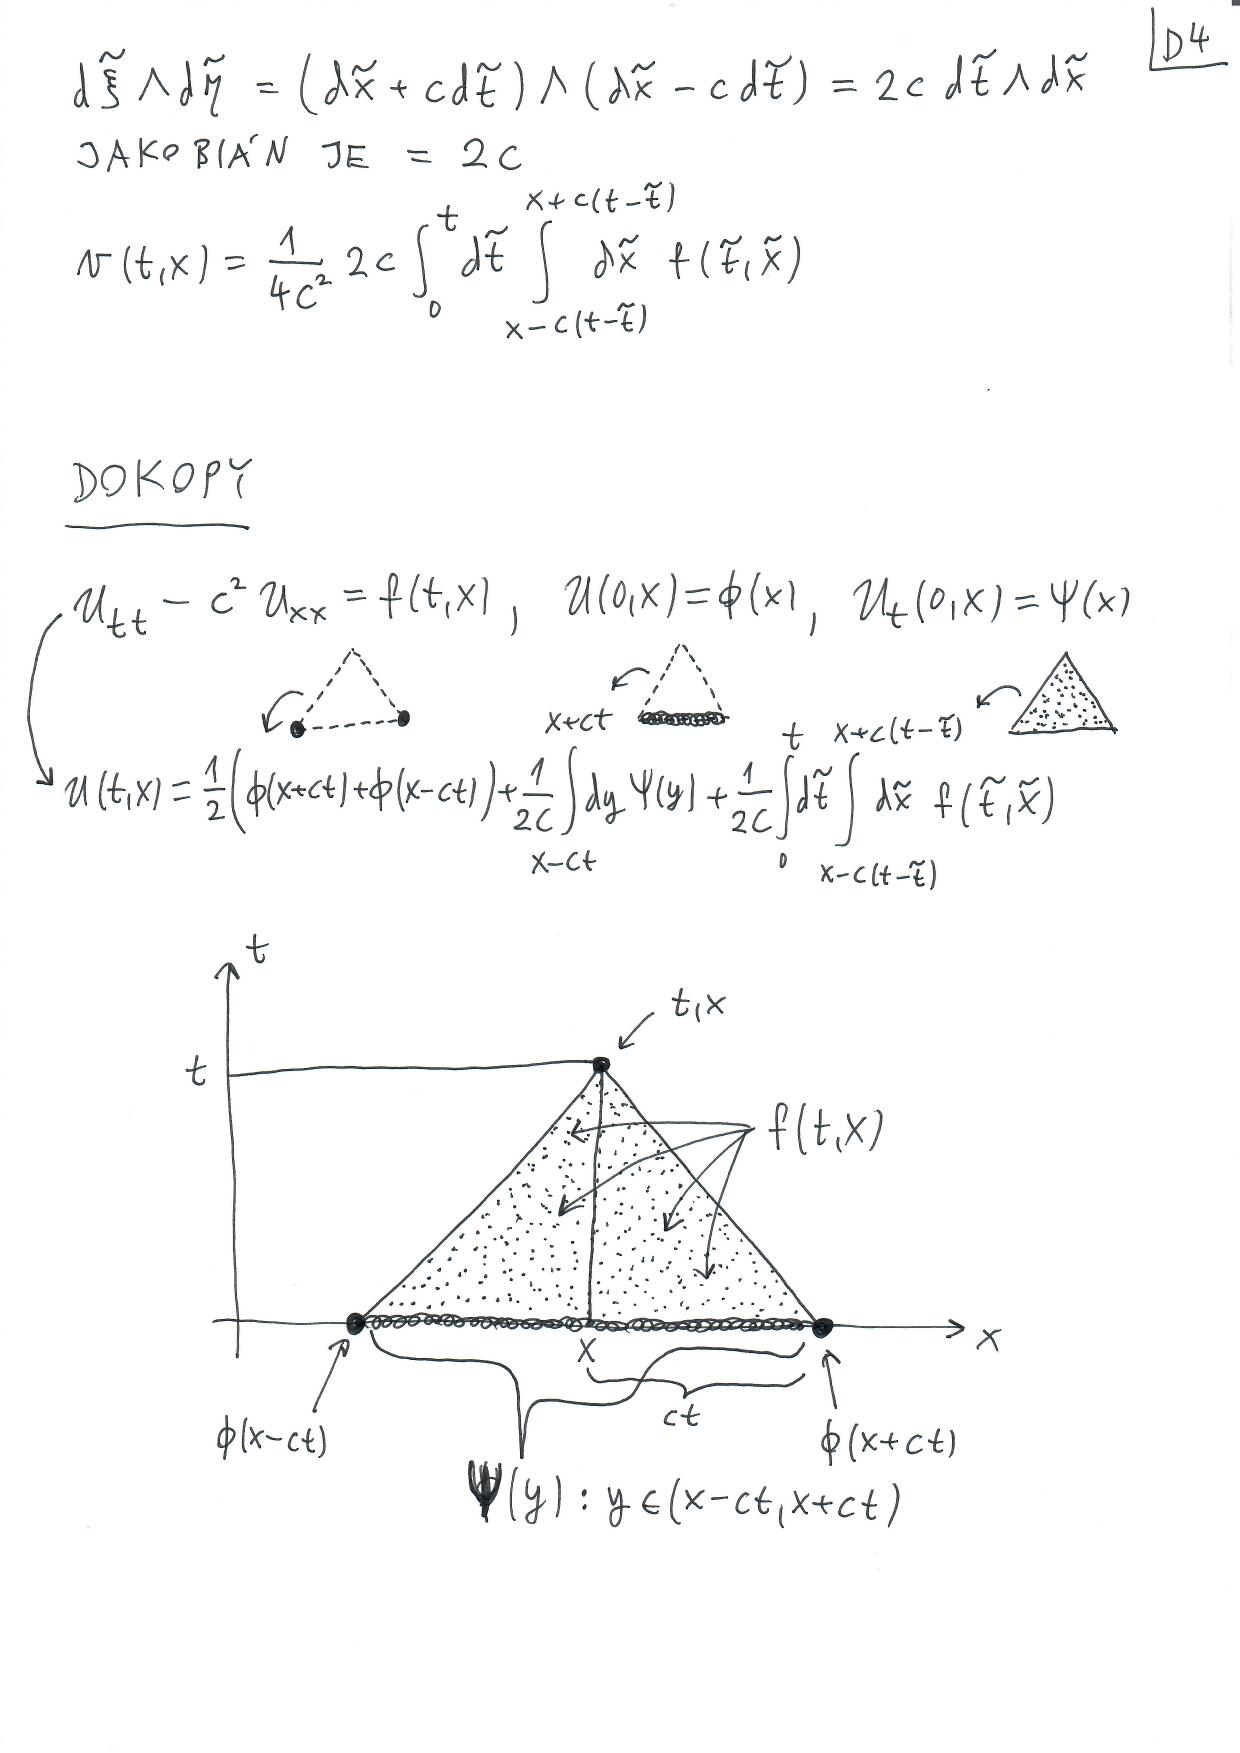 D4
dξ̃ ∧ dη̃ = (dx̃ + c dt̃) ∧ (dx̃ − c dt̃) = 2c dt̃ ∧ dx̃
JAKOBIÁN JE = 2C
v(t,x) = 1/4c² 2c ∫₀ᵗ dt̃ ∫_{x−c(t−t̃)}^{x+c(t−t̃)} dx̃ f(t̃,x̃)
DOKOPY
u_tt − c² u_xx = f(t,x), u(0,x) = ϕ(x), u_t(0,x) = ψ(x)
u(t,x) = 1/2 (ϕ(x+ct) + ϕ(x−ct)) + 1/2c ∫_{x−ct}^{x+ct} dy ψ(y) + 1/2c ∫₀ᵗ dt̃ ∫_{x−c(t−t̃)}^{x+c(t−t̃)} dx̃ f(t̃,x̃)
t
t,x
t
f(t,x)
x
x
ct
ϕ(x−ct)
ϕ(x+ct)
ψ(y) : y ∈ (x−ct, x+ct)